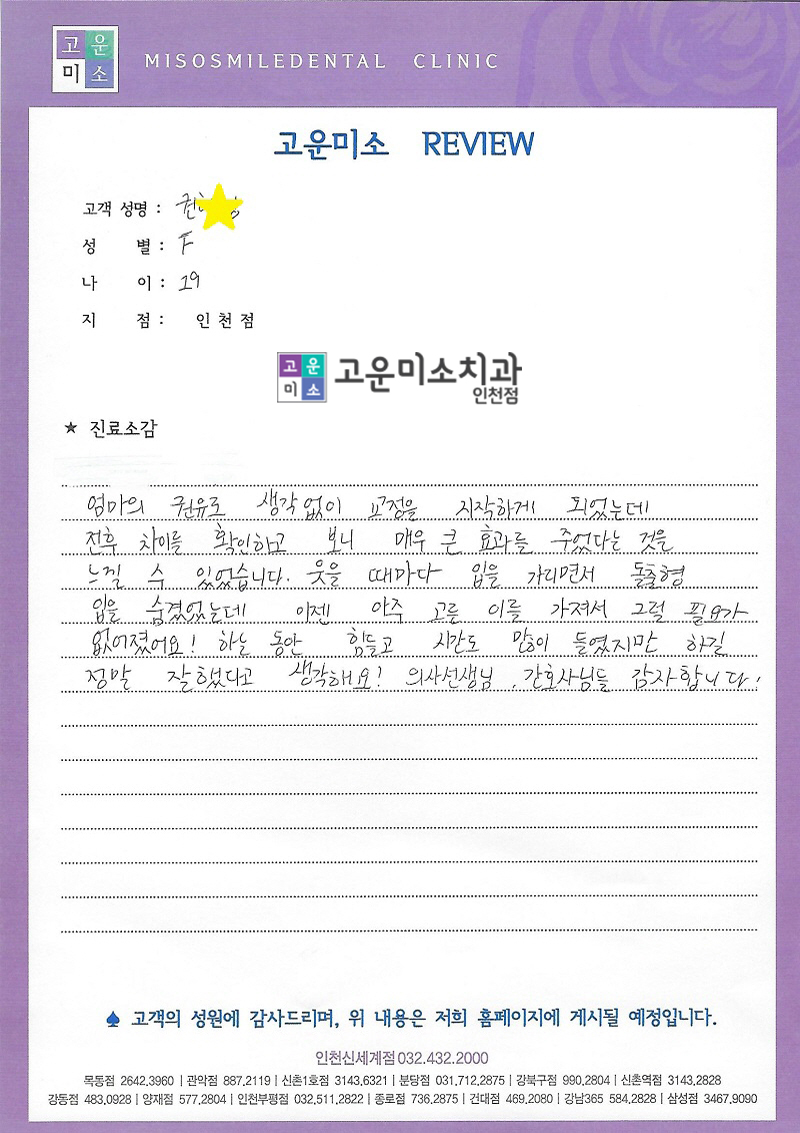 고운
미소
MISOSMILEDENTAL CLINIC
고운미소 REVIEW
고객 성명 : 권
성 별 : F
나 이 : 19
지 점 : 인천점
고운
미소
고운미소치과
인천점
★ 진료소감
엄마의 권유로 생각없이 교정을 시작하게 되었는데
전후 차이를 확인하고 보니 매우 큰 효과를 주었다는 것을
느낄 수 있었습니다. 웃을 때마다 입을 가리면서 돌출형
입을 숨겼었는데 이젠 아주 고른 이를 가져서 그럴 필요가
없어졌어요! 하는 동안 힘들고 시간도 많이 들였지만 하길
정말 잘했다고 생각해요! 의사선생님, 간호사님들 감사합니다.
♠ 고객의 성원에 감사드리며, 위 내용은 저희 홈페이지에 게시될 예정입니다.
인천신세계점 032.432.2000
목동점 2642.3960 | 관악점 887.2119 | 신촌1호점 3143.6321 | 분당점 031.712.2875 | 강북구점 990.2804 | 신촌역점 3143.2828
강동점 483.0928 | 양재점 577.2804 | 인천부평점 032.511.2822 | 종로점 736.2875 | 건대점 469.2080 | 강남365 584.2828 | 삼성점 3467.9090